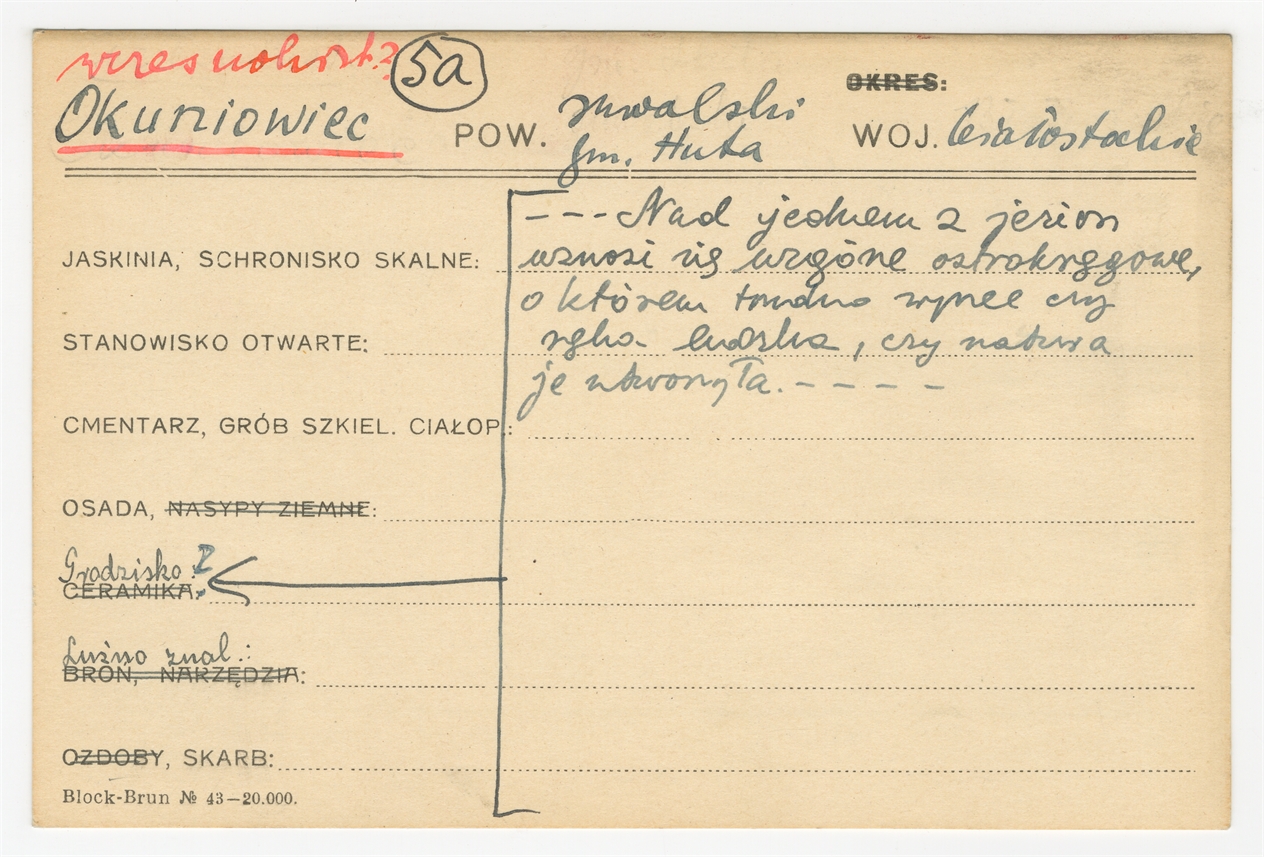 wczesnohist.?
5a
Okuniowiec
POW. suwalski
gm. Huta
OKRES:
WOJ. białostockie
- - - Nad jednem z jezior
wznosi się wzgórze ostrokręgowe,
o którem trudno wyrzec czy
ręka ludzka, czy natura
je utworzyła. - - - - -
JASKINIA, SCHRONISKO SKALNE:
STANOWISKO OTWARTE:
CMENTARZ, GRÓB SZKIEL. CIAŁOP.:
OSADA, NASYPY ZIEMNE:
Grodzisko ?
CERAMIKA:
Luźno znal.:
BROŃ, NARZĘDZIA:
OZDOBY, SKARB:
Block-Brun № 43—20.000.